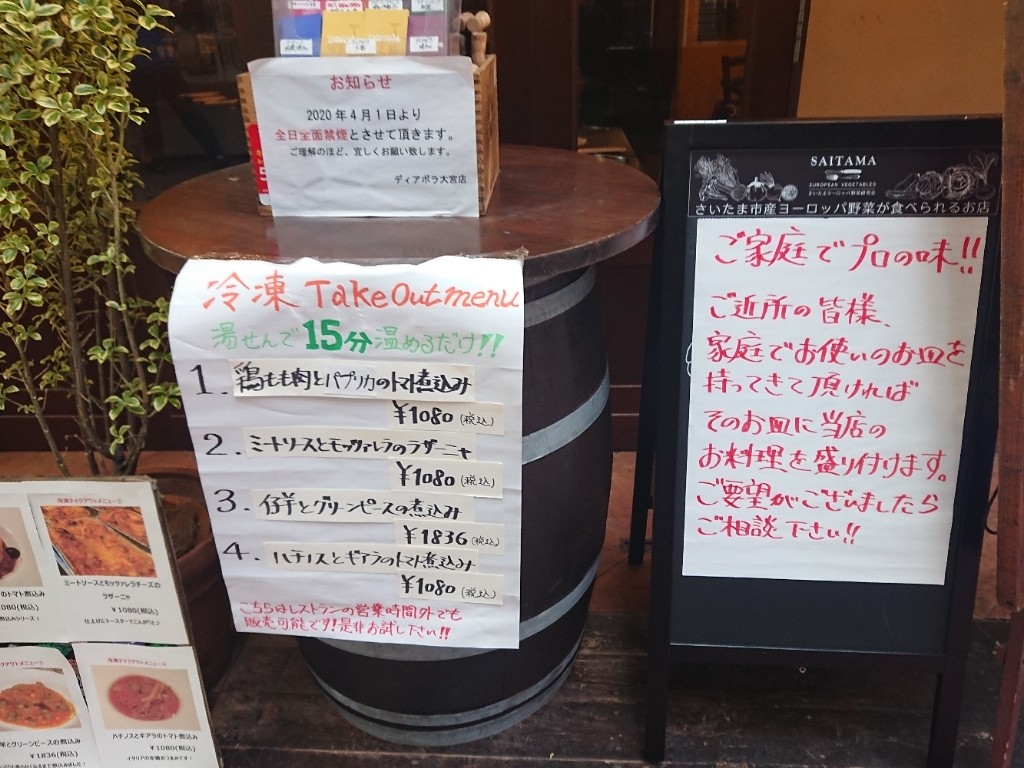 お知らせ
2020年4月1日より
全日全面禁煙とさせて頂きます。
ご理解のほど、宜しくお願い致します。
ディアボラ大宮店
冷凍 Take Out menu
湯せんで15分温めるだけ!!
1. 鶏もも肉とパプリカのトマト煮込み
¥1080 (税込)
2. ミートソースとモッツァレラのラザーニャ
¥1080 (税込)
3. 仔羊とグリーンピースの煮込み
¥1836 (税込)
4. ハチノスとギアラのトマト煮込み
¥1080 (税込)
こちらはレストランの営業時間外でも
販売可能です!是非お試し下さい!!
SAITAMA
EUROPEAN VEGETABLES
さいたまヨーロッパ野菜研究会
さいたま市産ヨーロッパ野菜が食べられるお店
ご家庭でプロの味!!
ご近所の皆様、
家庭でお使いのお皿を
持ってきて頂ければ
そのお皿に当店の
お料理を盛り付けます。
ご要望がございましたら
ご相談下さい!!
のトマト煮込み
1080(税込)
煮込みシリーズ！
冷凍テイクアウトメニュー②
ミートソースとモッツァレラチーズの
ラザーニャ
¥1080(税込)
仕上げにトースターでこんがりと♪
クアウトメニュー③
羊とグリーンピースの煮込み
¥1836(税込)
冷凍テイクアウトメニュー④
ハチノスとギアラのトマト煮込み
¥1080(税込)
イタリアの定番おつまみです！